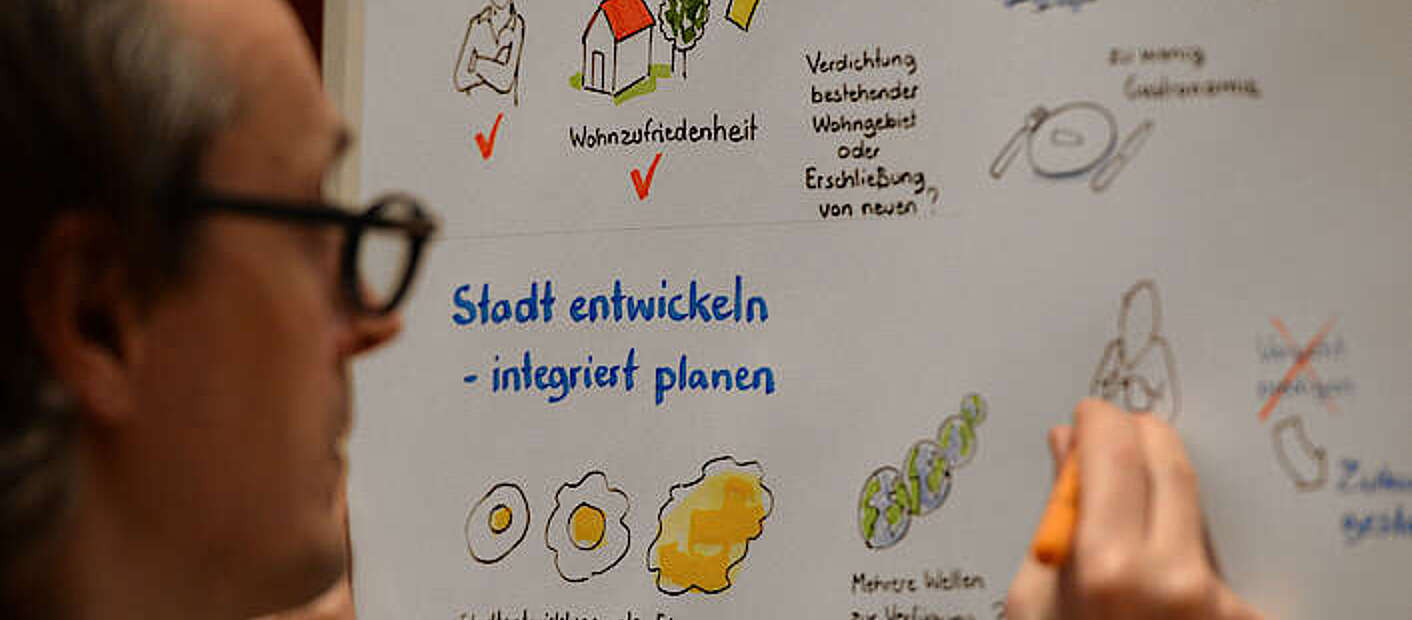 Wohnzufriedenheit
Verdichtung
bestehender
Wohngebiet
oder
Erschließung
von neuen?
zu wenig
Gastronomie
Stadt entwickeln
- integriert planen
Mehrere Welten
zur Verfügung ?